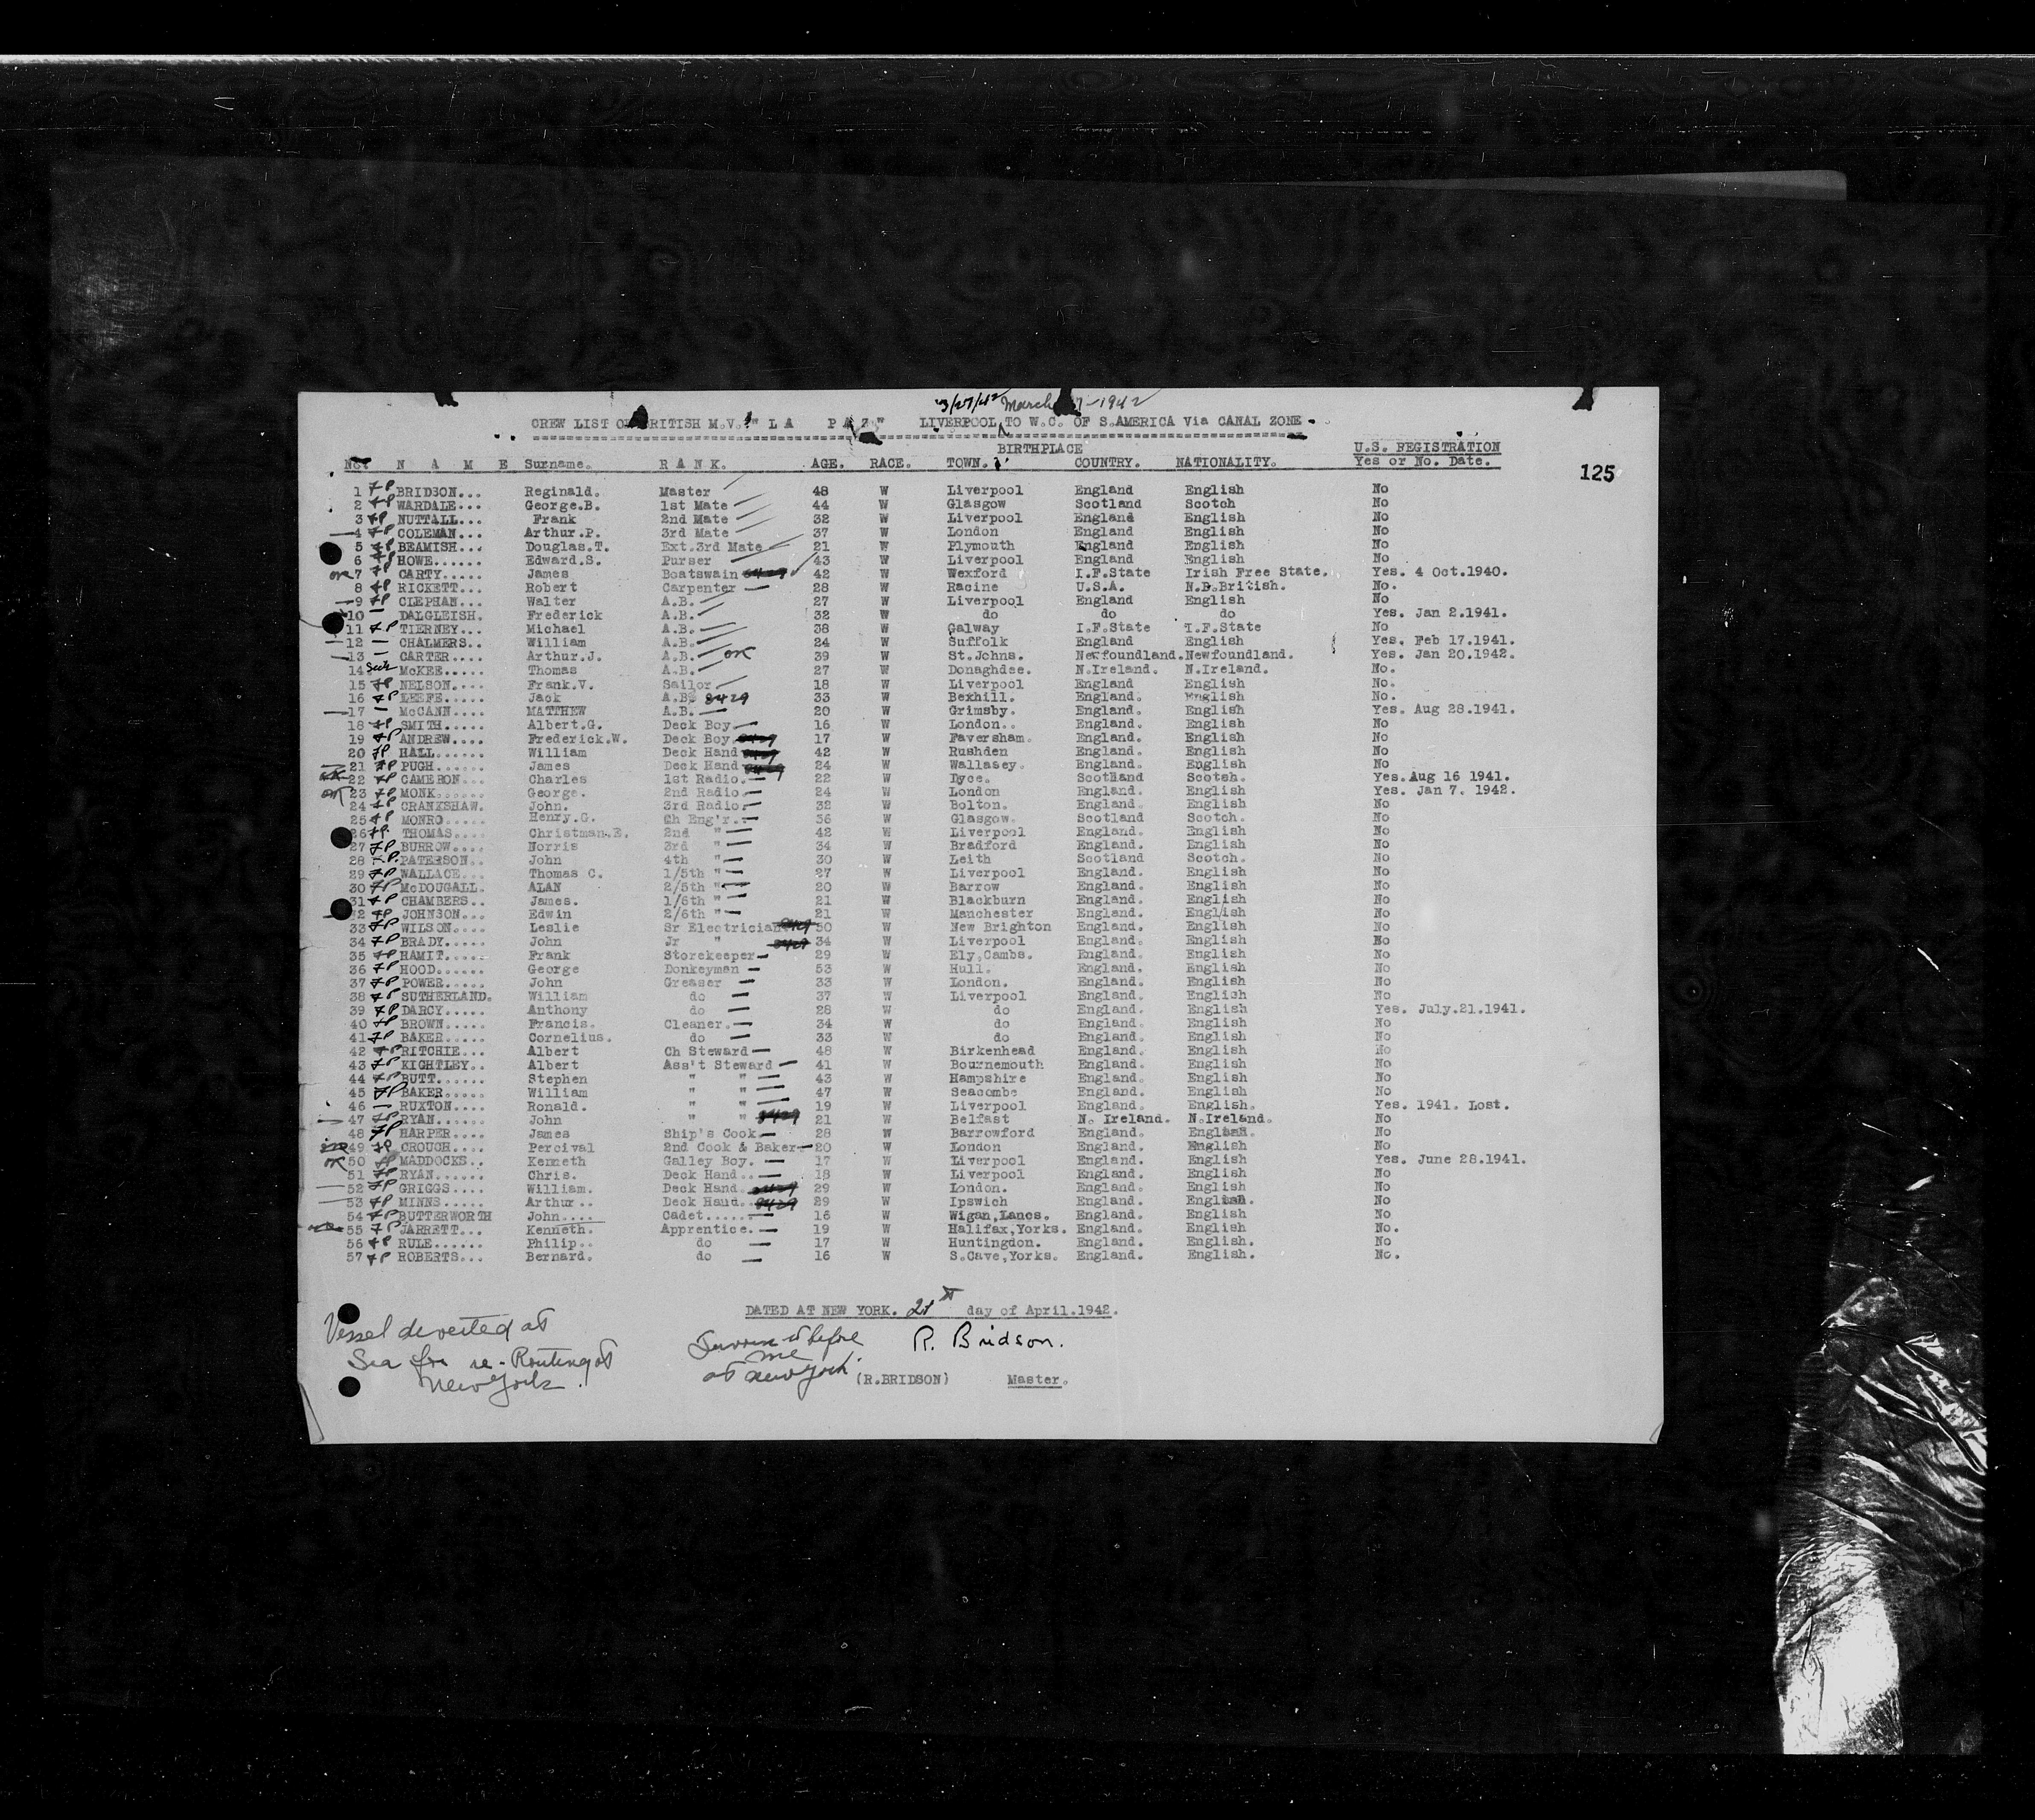 3/27/42 March 27-1942
CREW LIST OF BRITISH M.V. "LA PAZ" LIVERPOOL TO W.C. OF S.AMERICA Via CANAL ZONE.
BIRTHPLACE U.S. REGISTRATION
No. N A M E Surname. R A N K. AGE. RACE. TOWN. COUNTRY. NATIONALITY. Yes or No. Date.
125
1 7P BRIDSON... Reginald. Master 48 W Liverpool England English No
2 7P WARDALE... George.B. 1st Mate 44 W Glasgow Scotland Scotch No
3 7P NUTTALL... Frank 2nd Mate 32 W Liverpool England English No
4 7P COLEMAN... Arthur.P. 3rd Mate 37 W London England English No
5 7P BEAMISH... Douglas.T. Ext.3rd Mate 21 W Plymouth England English No
6 7P HOWE...... Edward.S. Purser 43 W Liverpool England English No
OK 7 7P CARTY..... James Boatswain 42 W Wexford I.F.State Irish Free State. Yes. 4 Oct.1940.
8 7P RICKETT... Robert Carpenter 28 W Racine U.S.A. N.B.British. No.
9 7P CLEPHAN... Walter A.B. 27 W Liverpool England English No
10 DALGLEISH. Frederick A.B. 32 W do do do Yes. Jan 2.1941.
11 7P TIERNEY... Michael A.B. 38 W Galway I.F.State I.F.State No
12 CHALMERS.. William A.B. 24 W Suffolk England English Yes. Feb 17.1941.
13 CARTER.... Arthur.J. A.B. OK 39 W St.Johns. Newfoundland. Newfoundland. Yes. Jan 20.1942.
14 McKEE..... Thomas A.B. 27 W Donaghdee. N.Ireland. N.Ireland. No.
15 7P NELSON.... Frank.V. Sailor 18 W Liverpool England English No.
16 7P LEEFE..... Jack A.B. 8429 33 W Bexhill. England. English No.
17 McCANN.... MATTHEW A.B. 20 W Grimsby. England. English Yes. Aug 28.1941.
18 7P SMITH..... Albert.G. Deck Boy 16 W London.. England. English No
19 7P ANDREW.... Frederick.W. Deck Boy. 17 W Faversham. England. English No
20 7P HALL...... William Deck Hand 42 W Rushden England. English No
21 7P PUGH...... James Deck Hand 24 W Wallasey. England. English No
22 7P CAMERON... Charles 1st Radio. 22 W Dyce. Scotland Scotch. Yes.Aug 16 1941.
OK 23 7P MONK...... George. 2nd Radio. 24 W London England. English Yes. Jan 7. 1942.
24 7P CRANKSHAW. John. 3rd Radio. 32 W Bolton. England. English No
25 7P MONRO..... Henry.G. Ch Eng'r.. 36 W Glasgow. Scotland Scotch. No
26 7P THOMAS.... Christman.E. 2nd " 42 W Liverpool England. English No
27 7P BURROW.... Norris 3rd " 34 W Bradford England. English No
28 7P PATERSON.. John 4th " 30 W Leith Scotland Scotch. No
29 7P WALLACE... Thomas C. 1/5th " 27 W Liverpool England. English No
30 7P McDOUGALL. ALAN 2/5th " 20 W Barrow England. English No
31 7P CHAMBERS.. James. 1/6th " 21 W Blackburn England. English No
32 7P JOHNSON... Edwin 2/6th " 21 W Manchester England. English No
33 7P WILSON.... Leslie Sr Electrician 50 W New Brighton England. English No
34 7P BRADY..... John Jr " 34 W Liverpool England. English No
35 7P HAMIT..... Frank Storekeeper 29 W Ely,Cambs. England. English No
36 7P HOOD...... George Donkeyman 53 W Hull. England. English No
37 7P POWER..... John Greaser 33 W London. England. English No
38 7P SUTHERLAND. William do 37 W Liverpool England. English No
39 7P DARCY..... Anthony do 28 W do England. English Yes. July.21.1941.
40 7P BROWN..... Francis. Cleaner. 34 W do England. English No
41 7P BAKER..... Cornelius. do 33 W do England. English No
42 7P RITCHIE... Albert Ch Steward 48 W Birkenhead England. English No
43 7P KIGHTLEY.. Albert Ass't Steward 41 W Bournemouth England. English No
44 7P BUTT...... Stephen " " 43 W Hampshire England. English No
45 7P BAKER..... William " " 47 W Seacombe England. English No
46 RUXTON.... Ronald. " " 19 W Liverpool England. English. Yes. 1941. Lost.
47 7P RYAN...... John " " 21 W Belfast N. Ireland. N.Ireland. No
48 7P HARPER.... James Ship's Cook 28 W Barrowford England. English. No
49 7P CROUCH.... Percival 2nd Cook & Baker 20 W London England. English No
OK 50 7P MADDOCKS.. Kenneth Galley Boy. 17 W Liverpool England. English Yes. June 28.1941.
51 7P RYAN...... Chris. Deck Hand.. 18 W Liverpool England. English No
52 7P GRIGGS.... William. Deck Hand. 29 W London. England. English No
53 7P MINNS..... Arthur.. Deck Hand. 29 W Ipswich England. English. No
54 7P BUTTERWORTH John.... Cadet..... 16 W Wigan,Lancs. England. English No
55 7P JARRETT... Kenneth. Apprentice. 19 W Halifax,Yorks. England. English No.
56 7P RULE...... Philip.. do 17 W Huntingdon. England. English. No
57 7P ROBERTS... Bernard. do 16 W S.Cave,Yorks. England. English. No.
DATED AT NEW YORK. 21st day of April.1942.
Vessel diverted at
Sea for re-Routing at
New York.
Sworn to before
me
at New York.
R. Bridson.
(R.BRIDSON) Master.